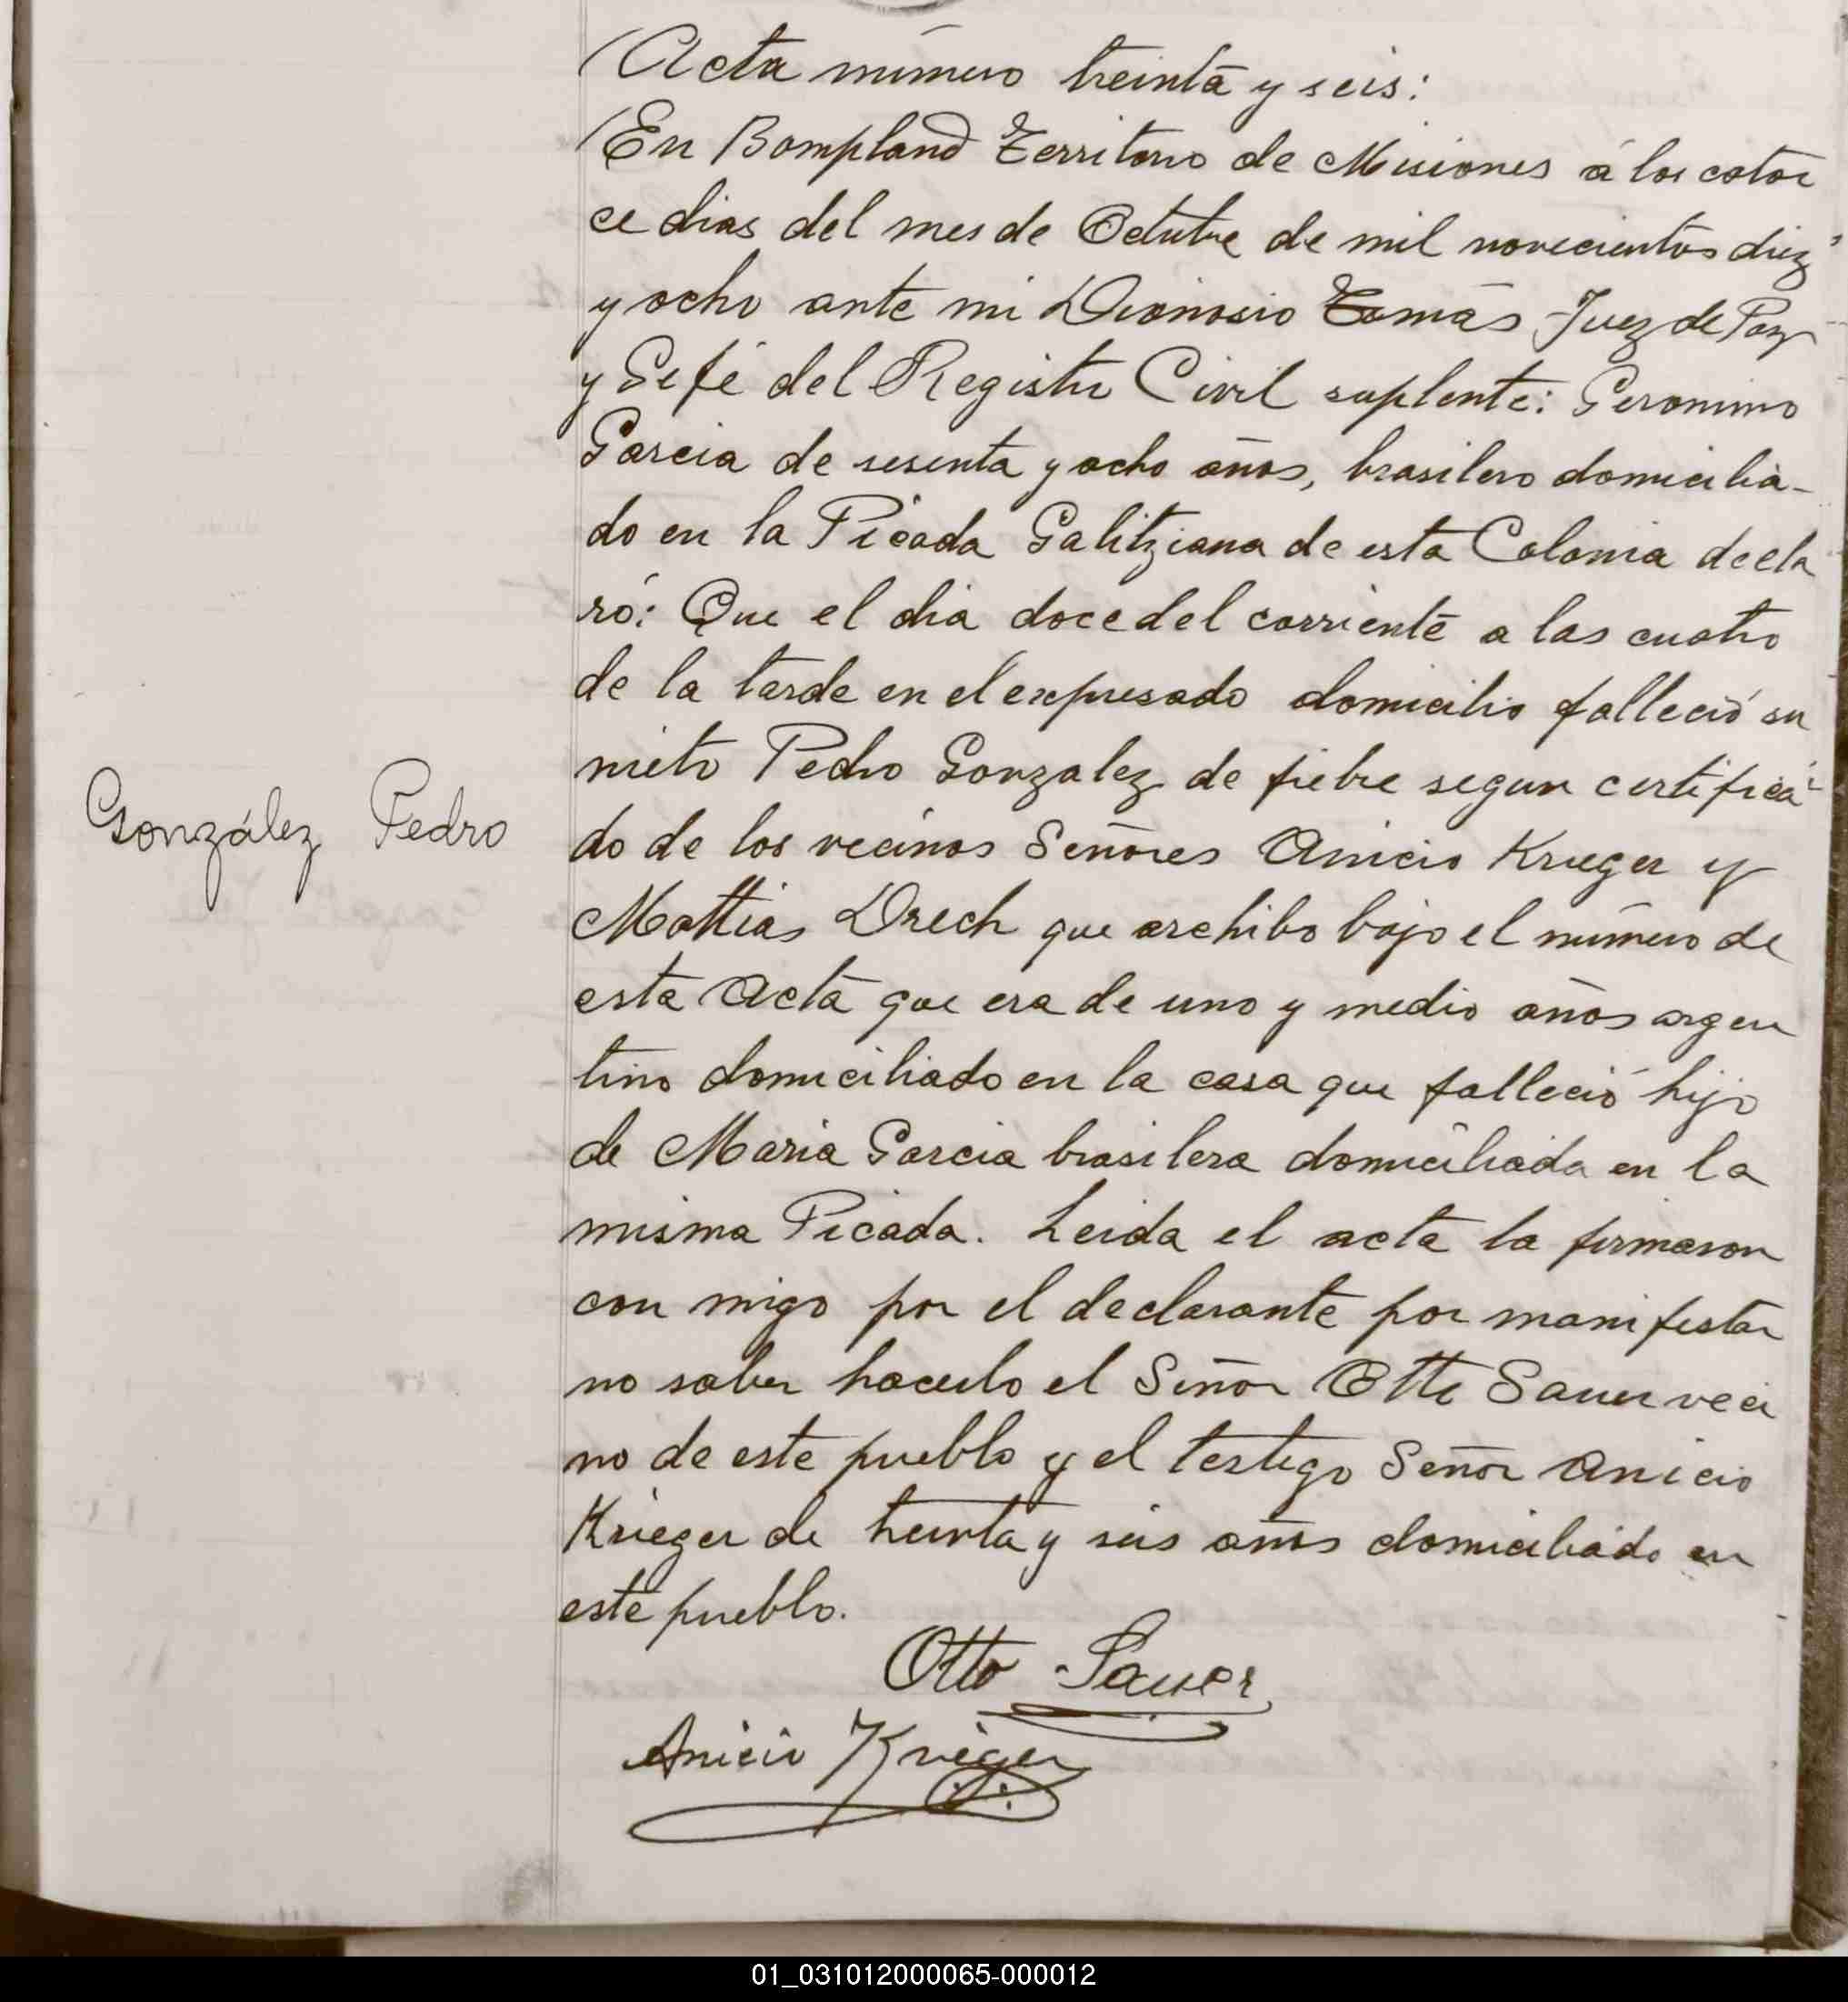 Acta número treinta y seis:
En Bompland Territorio de Misiones á los cator
ce dias del mes de Octubre de mil novecientos diez
y ocho ante mi Dionosio Tomás Juez de Paz
y Gefe del Registro Civil suplente: Geronimo
Garcia de sesenta y ocho años, brasilero domicilia-
do en la Picada Galitziana de esta Colonia decla
ró: Que el dia doce del corriente a las cuatro
de la tarde en el expresado domicilio falleció su
nieto Pedro Gonzalez de fiebre segun certifica
do de los vecinos Señores Anicio Krieger y
González Pedro
Mattias Drech que archibo bajo el número de
esta Acta que era de uno y medio años argen
tino domiciliado en la casa que falleció hijo
de Maria Garcia brasilera domiciliada en la
misma Picada. Leida el acta la firmaron
con migo por el declarante por manifestar
no saber hacerlo el Señor Otto Sauer veci
no de este pueblo y el testigo Señor Anicio
Krieger de treinta y seis años domiciliado en
este pueblo.
Otto Sauer
Anicio Krieger
01_031012000065-000012